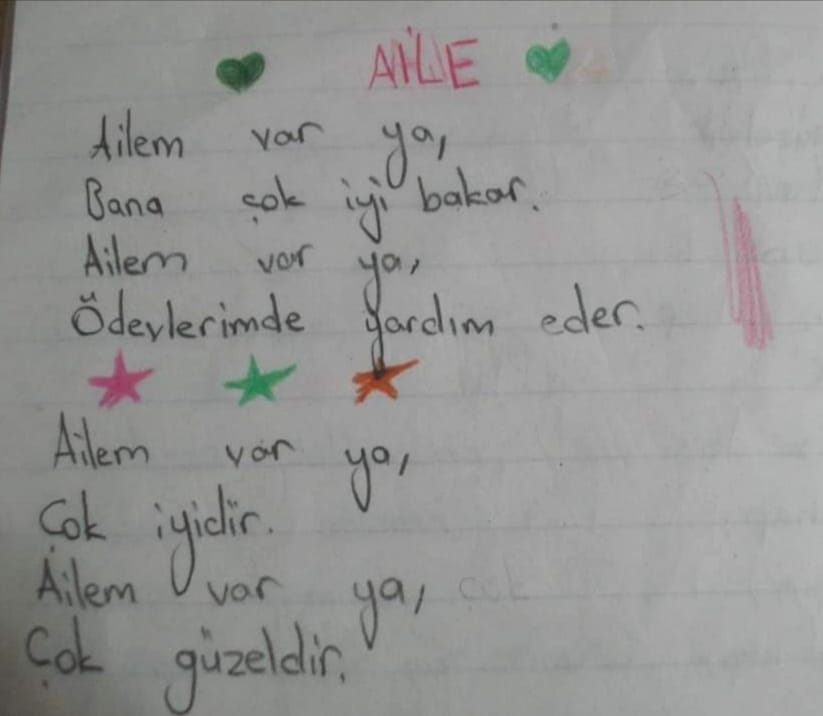 AİLE
Ailem var ya,
Bana çok iyi bakar.
Ailem var ya,
Ödevlerimde yardım eder.
Ailem var ya,
Çok iyidir.
Ailem var ya, çok
Çok güzeldir.